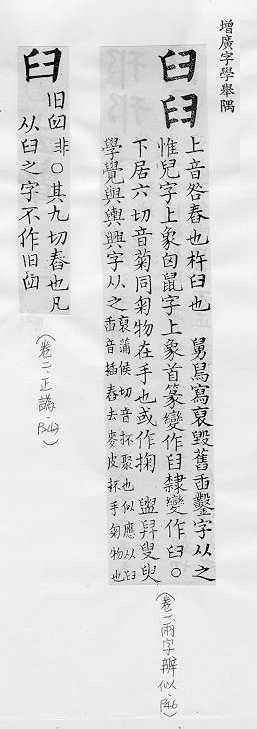 增廣字學舉隅
臼𦥑
上音咎舂也杵臼也 舅舄寫裒毀舊臿鑿字从之
惟兒字上象囟鼠字上象首篆變作臼隸變作臼○
下居六切音菊同匊物在手也或作掬 盥舁叟臾
學覺與輿興字从之
裒蒲候切音抔聚也似應从𦥑
臿音插舂去麥皮抔手匊物也
(卷二、兩字辨似、P46)
臼
旧𦥓非○其九切舂也凡
从臼之字不作旧
(卷二、正譌、P343)